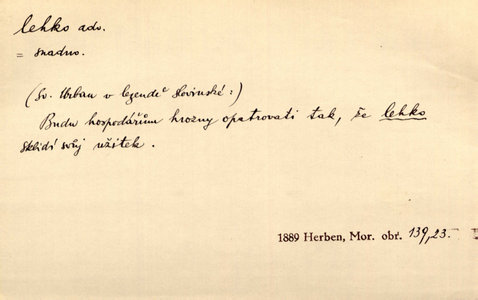 lehko adv.
= snadno.
(Sv. Urban v legendě slovinské:)
Budu hospodářům hrozny opatrovati tak, že lehko
sklidí svůj užitek.
1889 Herben, Mor. obř. 139,23.